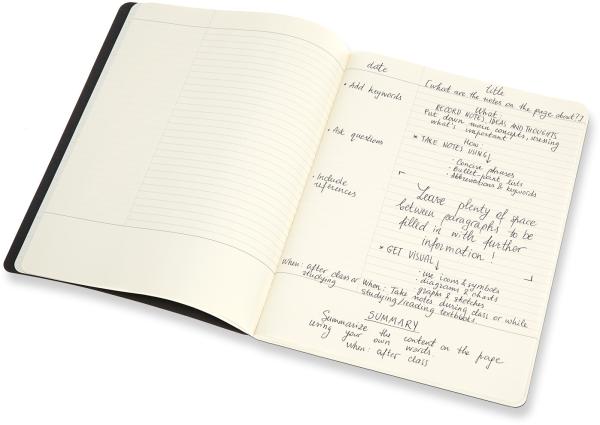 date
title
[what are the notes on the page about?]
• Add keywords
• Ask questions
• Include
references
When: after class or
studying
What:
RECORD NOTES, IDEAS AND THOUGHTS
Put down main concepts,
what's important
How:
* TAKE NOTES USING↓
· Concise phrases
· bullet-point lists
· Abbreviations & keywords
Leave plenty of space
between paragraphs to be
filled in with further
information!
* GET VISUAL↓
· use icons & symbols
· diagrams & charts
· graphs & sketches
When: Take notes during class or while
studying/reading textbooks.
SUMMARY
Summarize the content on the page
using your own words.
When: after class